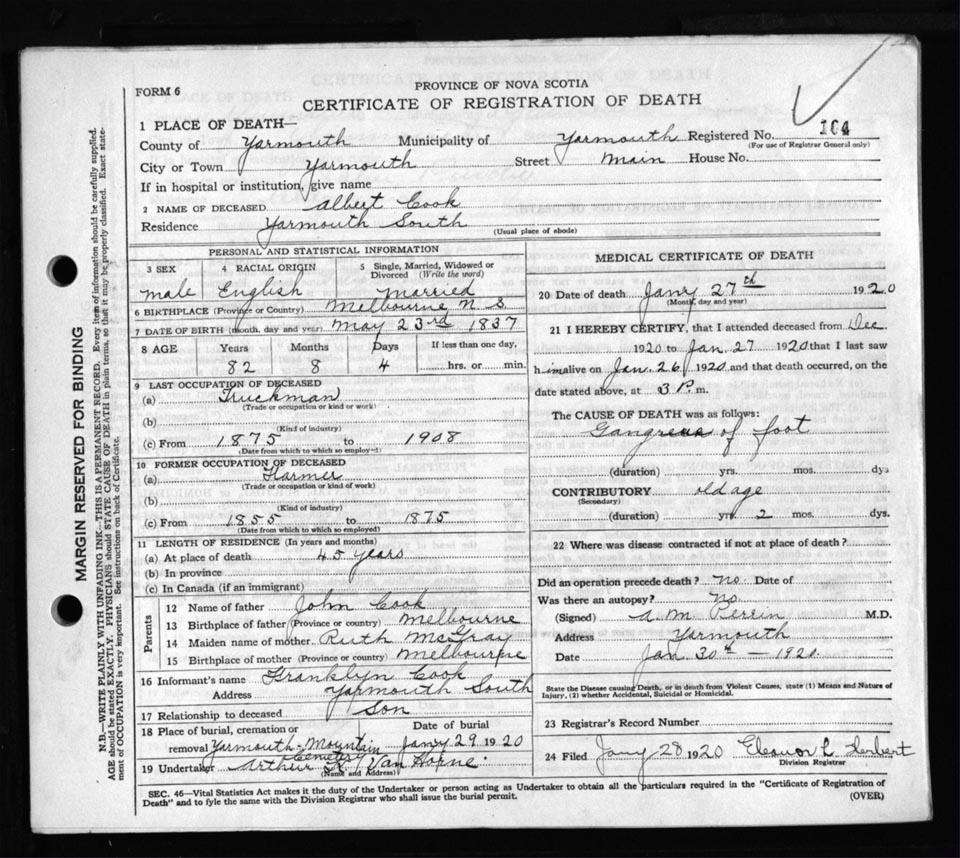 FORM 6
PROVINCE OF NOVA SCOTIA
CERTIFICATE OF REGISTRATION OF DEATH
1 PLACE OF DEATH—
County of Yarmouth Municipality of Yarmouth Registered No. 164
(For use of Registrar General only)
City or Town Yarmouth Street Main House No.
If in hospital or institution, give name
2 NAME OF DECEASED Albert Cook
Residence Yarmouth South
(Usual place of abode)
PERSONAL AND STATISTICAL INFORMATION
3 SEX 4 RACIAL ORIGIN 5 Single, Married, Widowed or Divorced (Write the word)
Male English Married
6 BIRTHPLACE (Province or Country) Melbourne N S
7 DATE OF BIRTH (month, day and year) May 23rd 1837
8 AGE Years Months Days If less than one day,
82 8 4 hrs. or min.
9 LAST OCCUPATION OF DECEASED
(a) Truckman
(Trade or occupation or kind or work)
(b)
(Kind of industry)
(c) From 1875 to 1908
(Date from which to which so employed)
10 FORMER OCCUPATION OF DECEASED
(a) Farmer
(Trade or occupation or kind of work)
(b)
(Kind of industry)
(c) From 1855 to 1875
(Date from which to which so employed)
11 LENGTH OF RESIDENCE (In years and months)
(a) At place of death 45 years
(b) In province
(c) In Canada (if an immigrant)
Parents
12 Name of father John Cook
13 Birthplace of father (Province or country) Melbourne
14 Maiden name of mother Ruth McGray
15 Birthplace of mother (Province or country) Melbourne
16 Informant's name Franklyn Cook
Address Yarmouth South
17 Relationship to deceased Son
18 Place of burial, cremation or Date of burial
removal Yarmouth-Mountain Cemetery Jany 29 1920
19 Undertaker Arthur K. Van Horne
(Name and Address)
MEDICAL CERTIFICATE OF DEATH
20 Date of death Jany 27th 1920
(Month, day and year)
21 I HEREBY CERTIFY, that I attended deceased from Dec.
1920 to Jan. 27 1920 that I last saw
him alive on Jan. 26, 1920 and that death occurred, on the
date stated above, at 3 P. m.
The CAUSE OF DEATH was as follows:
Gangrene of foot
(duration) yrs. mos. dys
CONTRIBUTORY old age
(Secondary)
(duration) yrs. 2 mos. dys.
22 Where was disease contracted if not at place of death?
Did an operation precede death? No Date of
Was there an autopsy? No
(Signed) A. M. Perrin M.D.
Address Yarmouth
Date Jan 30th — 1920.
State the Disease causing Death, or in death from Violent Causes, state (1) Means and Nature of
Injury, (2) whether Accidental, Suicidal or Homicidal.
23 Registrar's Record Number
24 Filed Jany 28 1920 Eleanor L
Division Registrar
SEC. 46—Vital Statistics Act makes it the duty of the Undertaker or person acting as Undertaker to obtain all the particulars required in the "Certificate of Registration of
Death" and to fyle the same with the Division Registrar who shall issue the burial permit. (OVER)
MARGIN RESERVED FOR BINDING
N.B.—WRITE PLAINLY WITH UNFADING INK—THIS IS A PERMANENT RECORD. Every item of information should be carefully supplied.
AGE should be stated EXACTLY. PHYSICIANS should STATE CAUSE OF DEATH in plain terms, so that it may be properly classified. Exact state-
ment of OCCUPATION is very important. See instructions on back of Certificate.